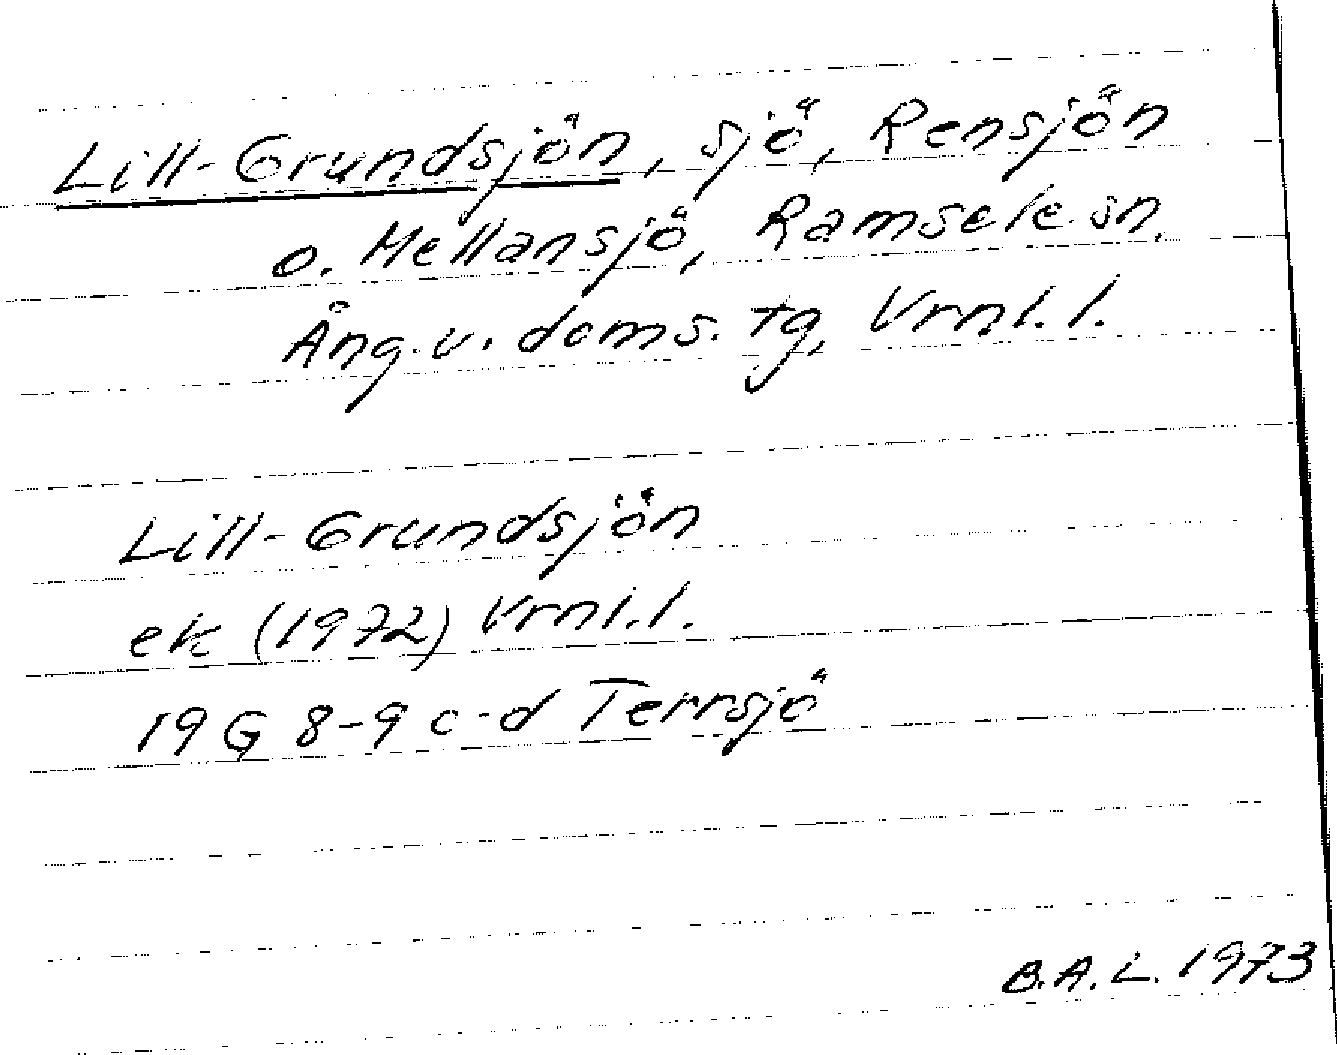 Lill-Grundsjön, sjö, Rensjön
o. Mellansjö, Ramsele sn.
Ång.v. doms. tg, Vrnl.l.
Lill-Grundsjön
ek (1972) Vrnl.l.
19 G 8-9 c-d Terrsjö
B.A.L. 1973